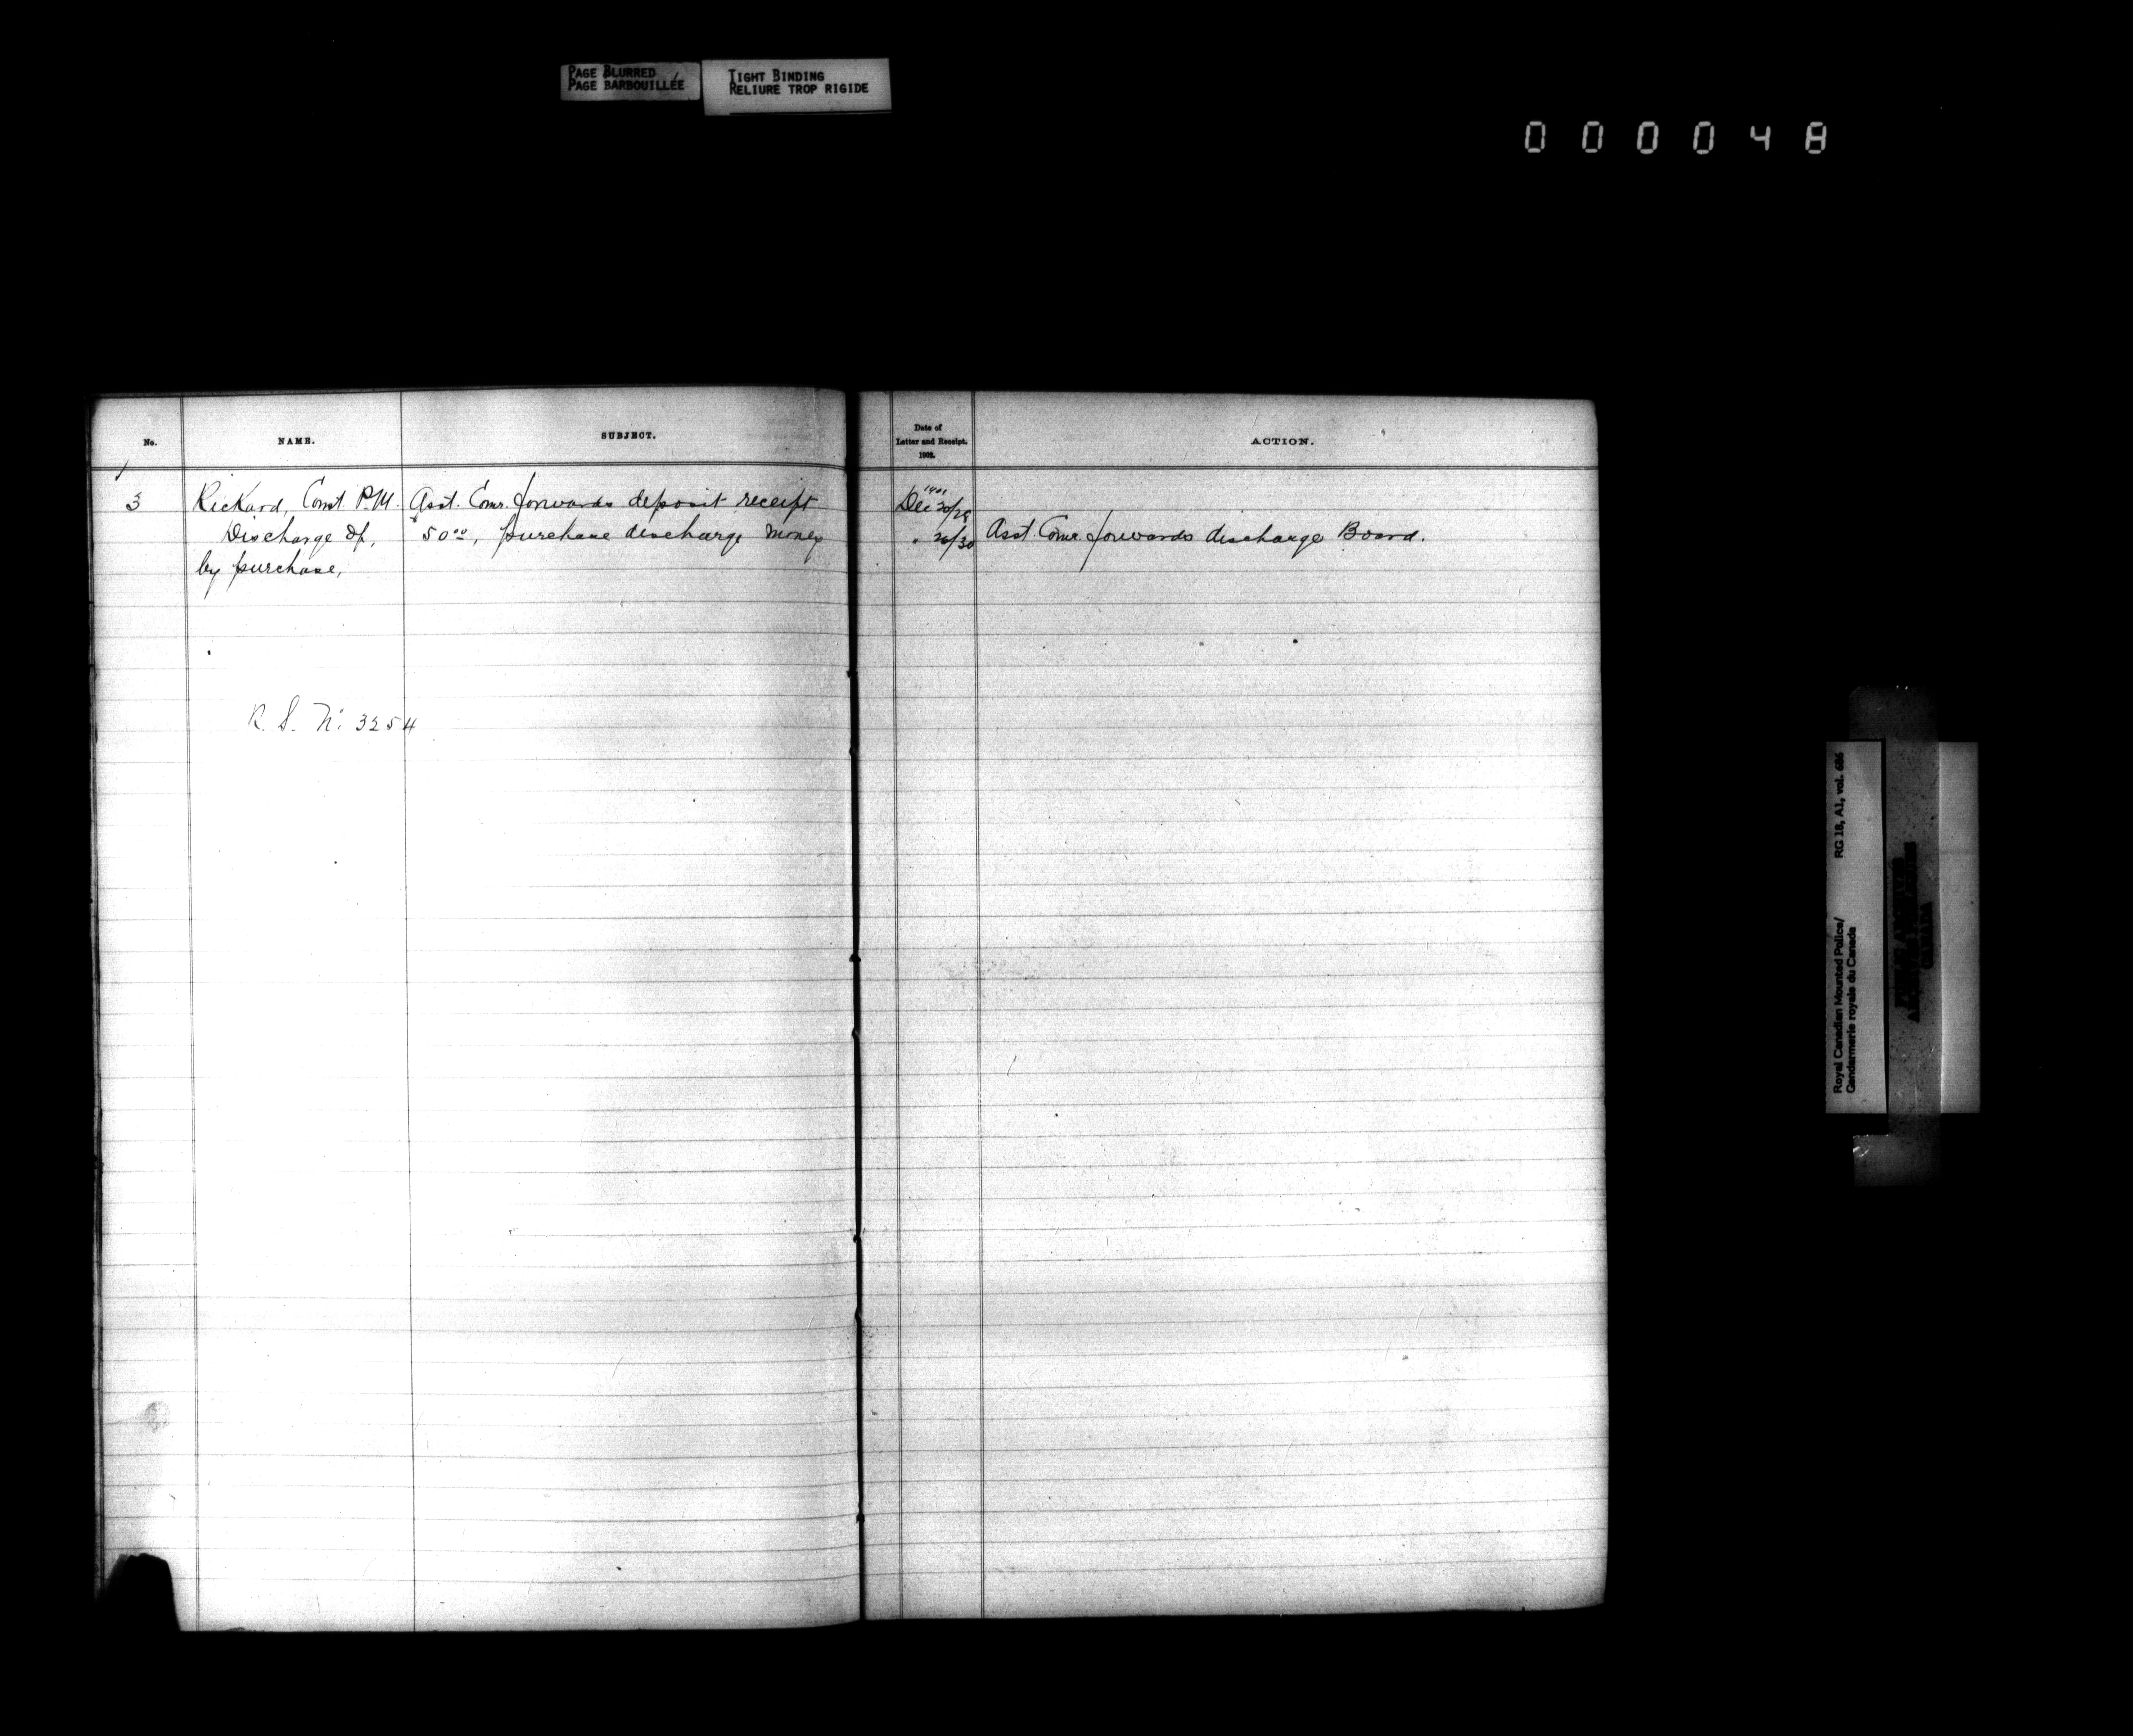 PAGE BLURRED
PAGE BARBOUILLÉE
TIGHT BINDING
RELIURE TROP RIGIDE
000048
No.
NAME.
SUBJECT.
Date of
Letter and Receipt.
1902.
ACTION.
3
Rickard, Const. P.M.
Discharge of,
by purchase,
Asst. Comr. forwards deposit receipt
$50.00, purchase discharge money
1901
Dec 20/28
" 26/30
Asst. Comr. forwards discharge Board.
R. S. No. 3254
Royal Canadian Mounted Police/
Gendarmerie royale du Canada
RG 18, A1, vol. 686
CANADA